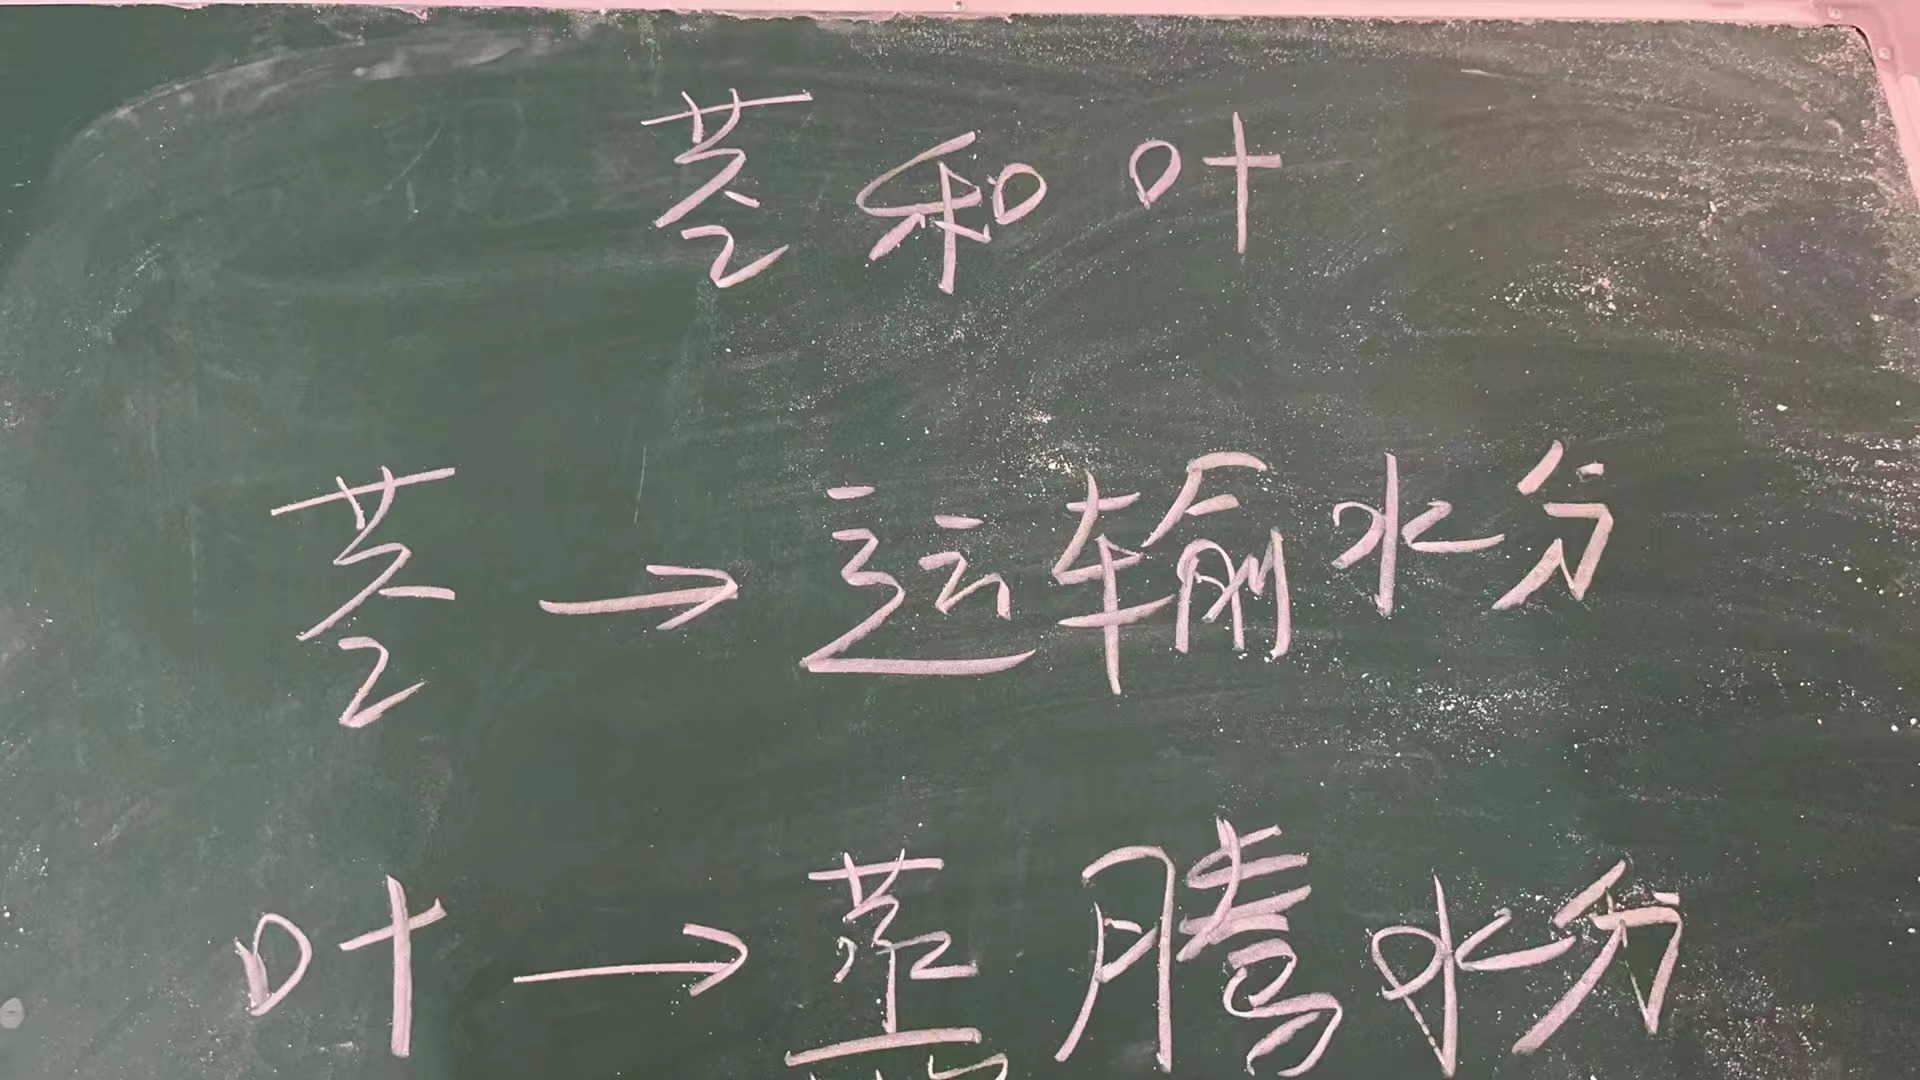 茎和叶
茎→运输水分
叶→蒸腾水分